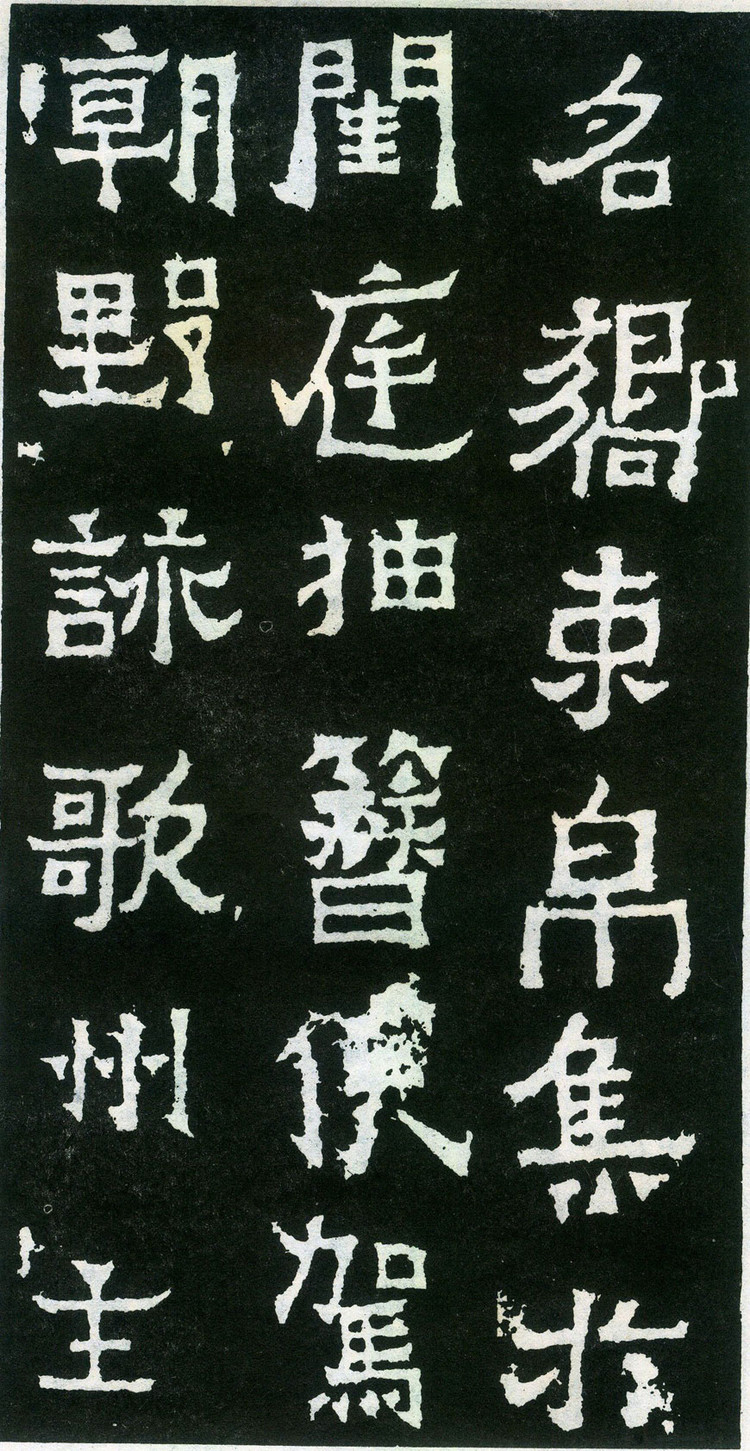 名嚮束帛集於
閨庭抽簪使駕
朝野詠歌州主